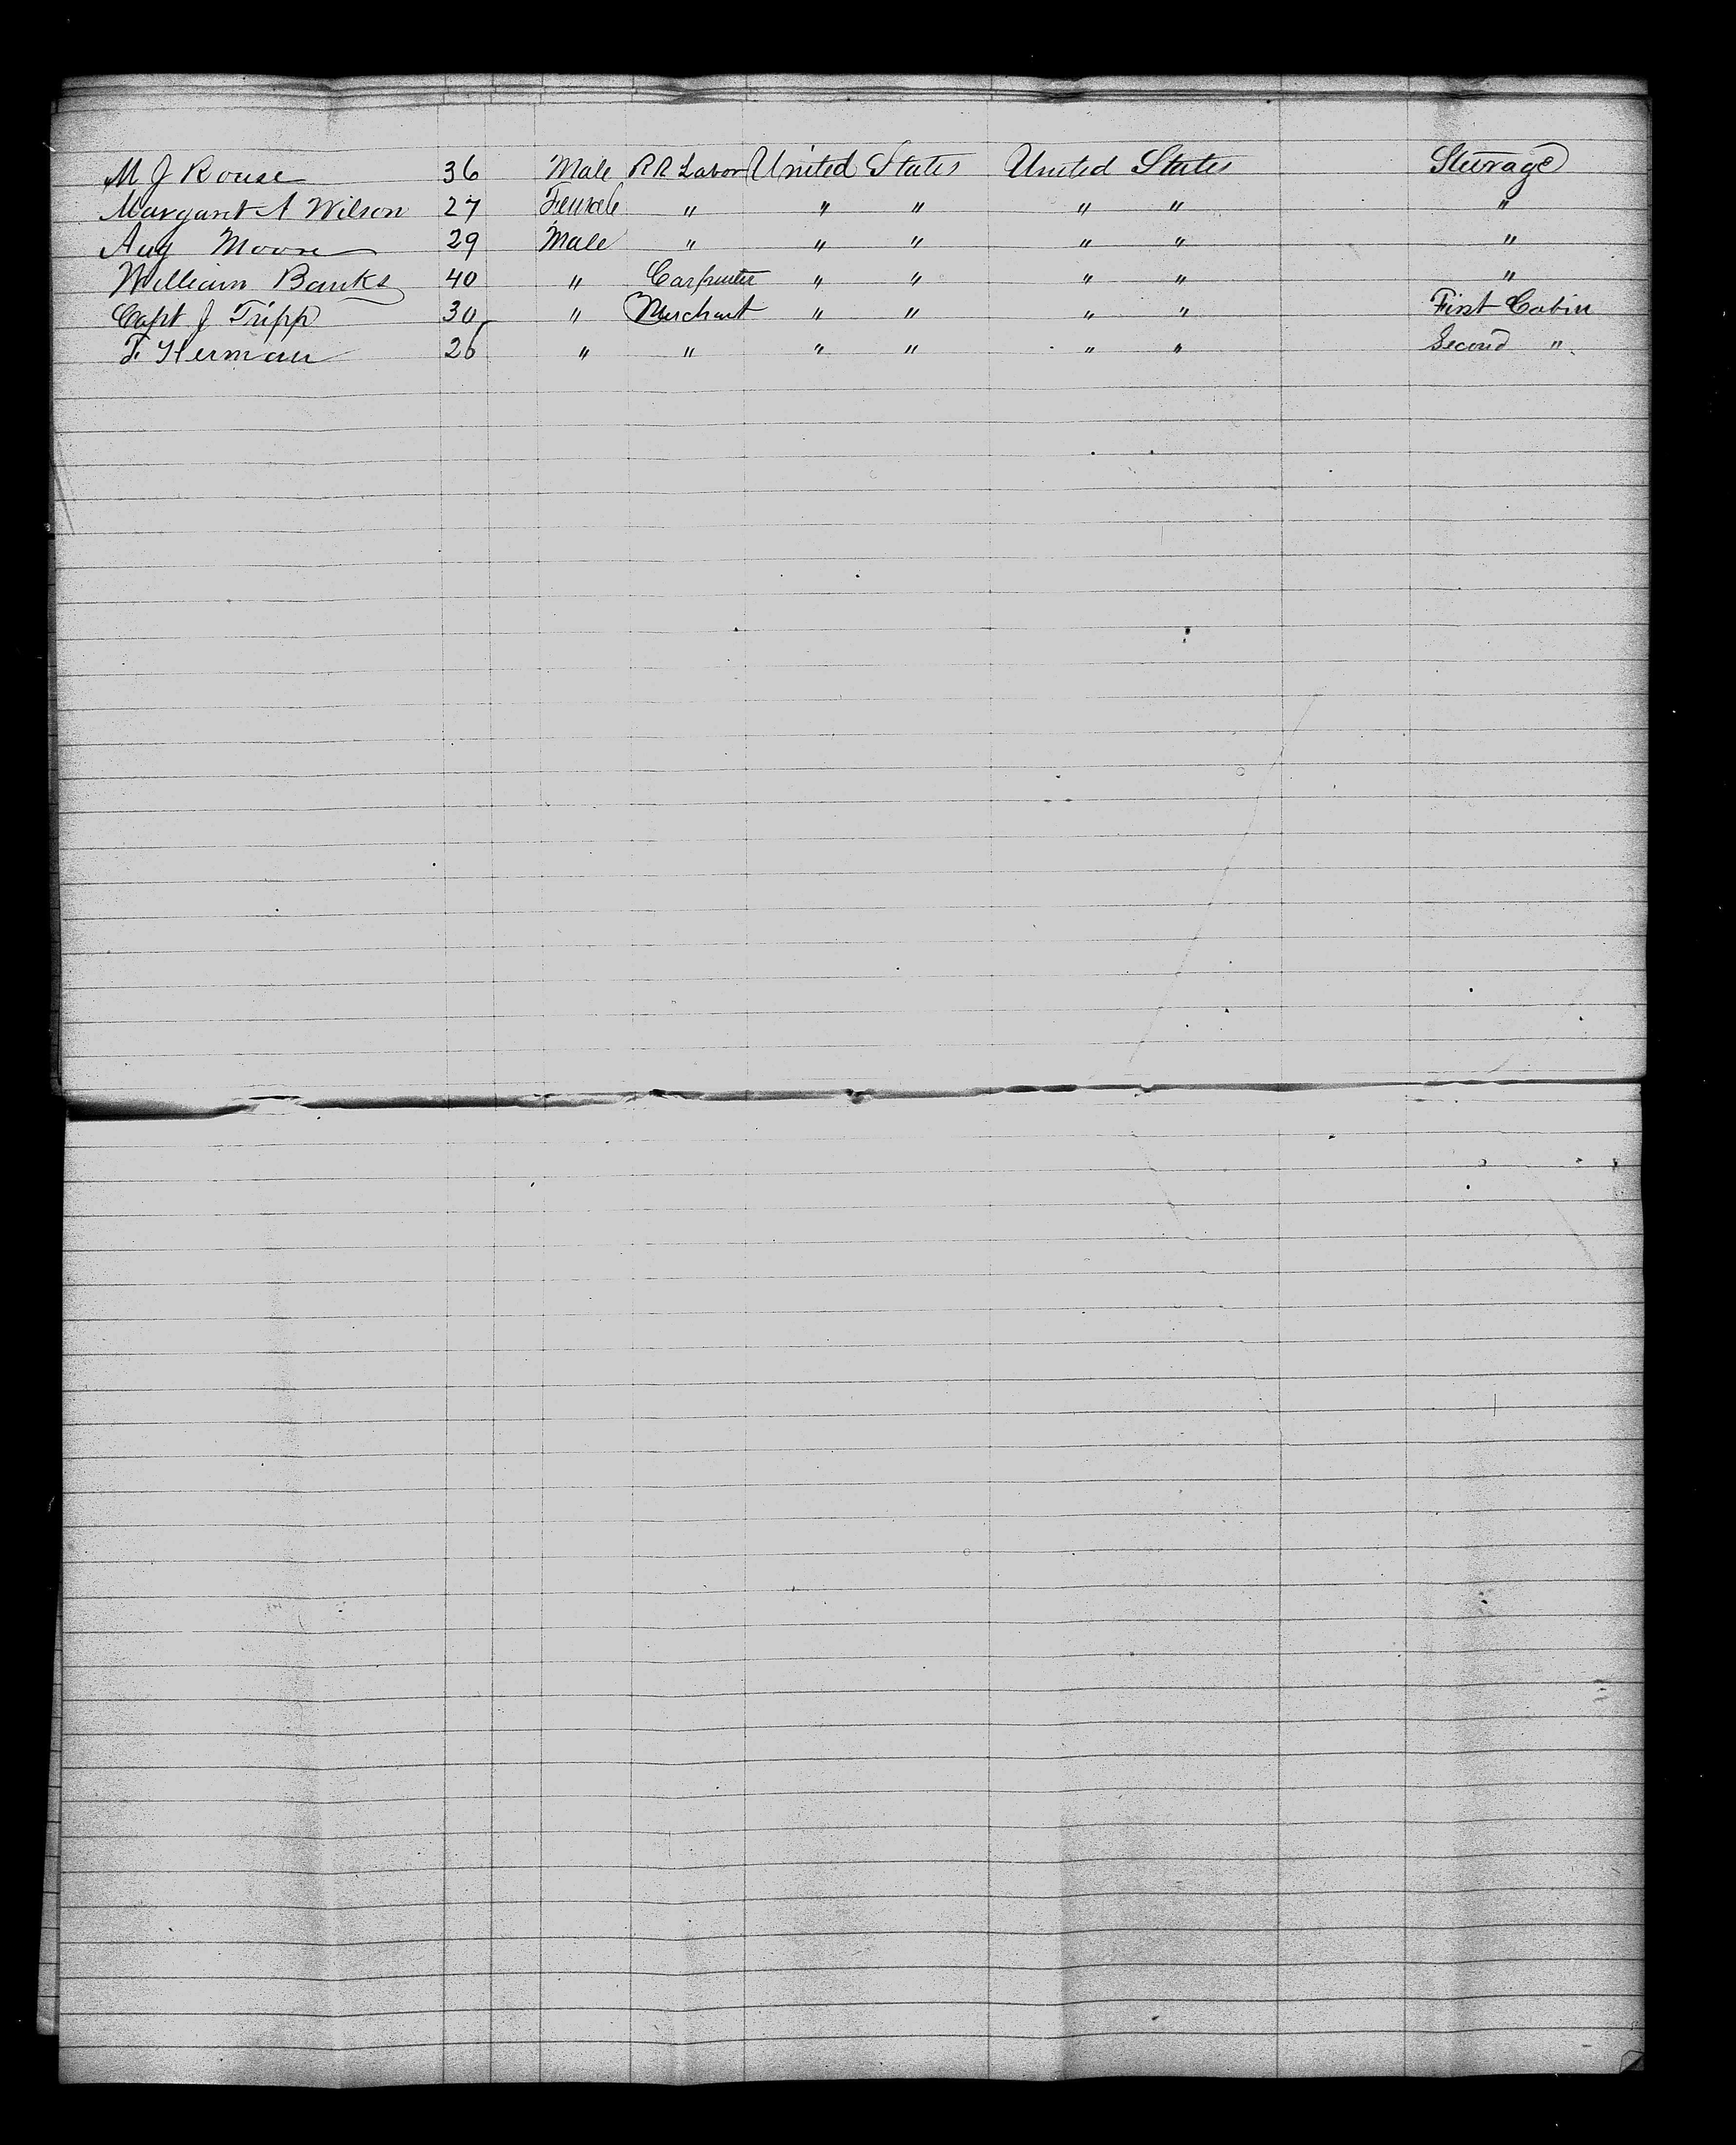 M J Rouse 36 Male RR Labor United States United States Steerage
Margaret A Wilson 27 Female " " " " " "
Aug Moore 29 Male " " " " " "
William Banks 40 " Carpenter " " " " "
Capt J Tripp 30 " Merchant " " " " First Cabin
F Herman 26 " " " " " " Second "